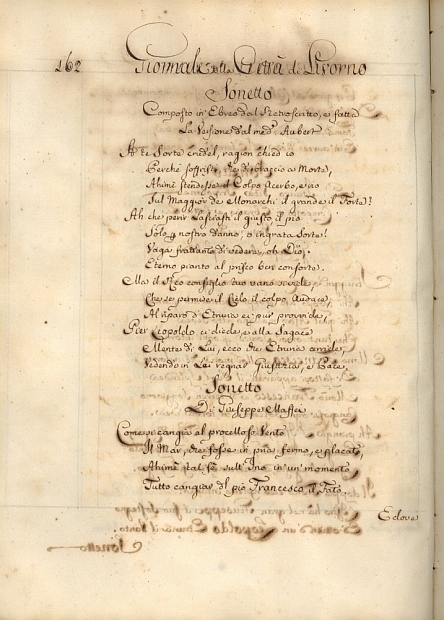 162 Giornale della Città di Livorno
Sonetto
Composto in Ebreo dal Retroscritto, e fatta
La Versione dal med.º Aubert
A te Sorte crudel, ragion chied'io
Perchè soffristi, che di rio laccio a Morte,
Ahimè stendesse il Colpo acerbo, e rio
Sul Maggior de Monarchi il grande il Forte?
Ah che perir lasciasti il giusto il pio
Solo p nostro danno, o ingrata Sorte!
Vaga frattanto di vedere, oh Dio!
Eterno pianto al prisco ben consorte.
Ma il Reo consiglio tuo vano si vede,
Che se permise il Cielo il colpo Audace,
Al riparo d'Etruria ei pur provvide,
Pier Leopoldo ci diede, e alla Sagace
Mente di Lui, ecco che Etruria arride,
Vedendo in Lei regnar Giustizia, e Pace.
Sonetto
Di Giuseppe Maffei
Come si cangia al procelloso Vento
Il Mar, che fosse in pria fermo, e placato,
Ahimè tal se sull' Ino in un momento
Tutto cangiar del pio Francesco il Fato.
E dove